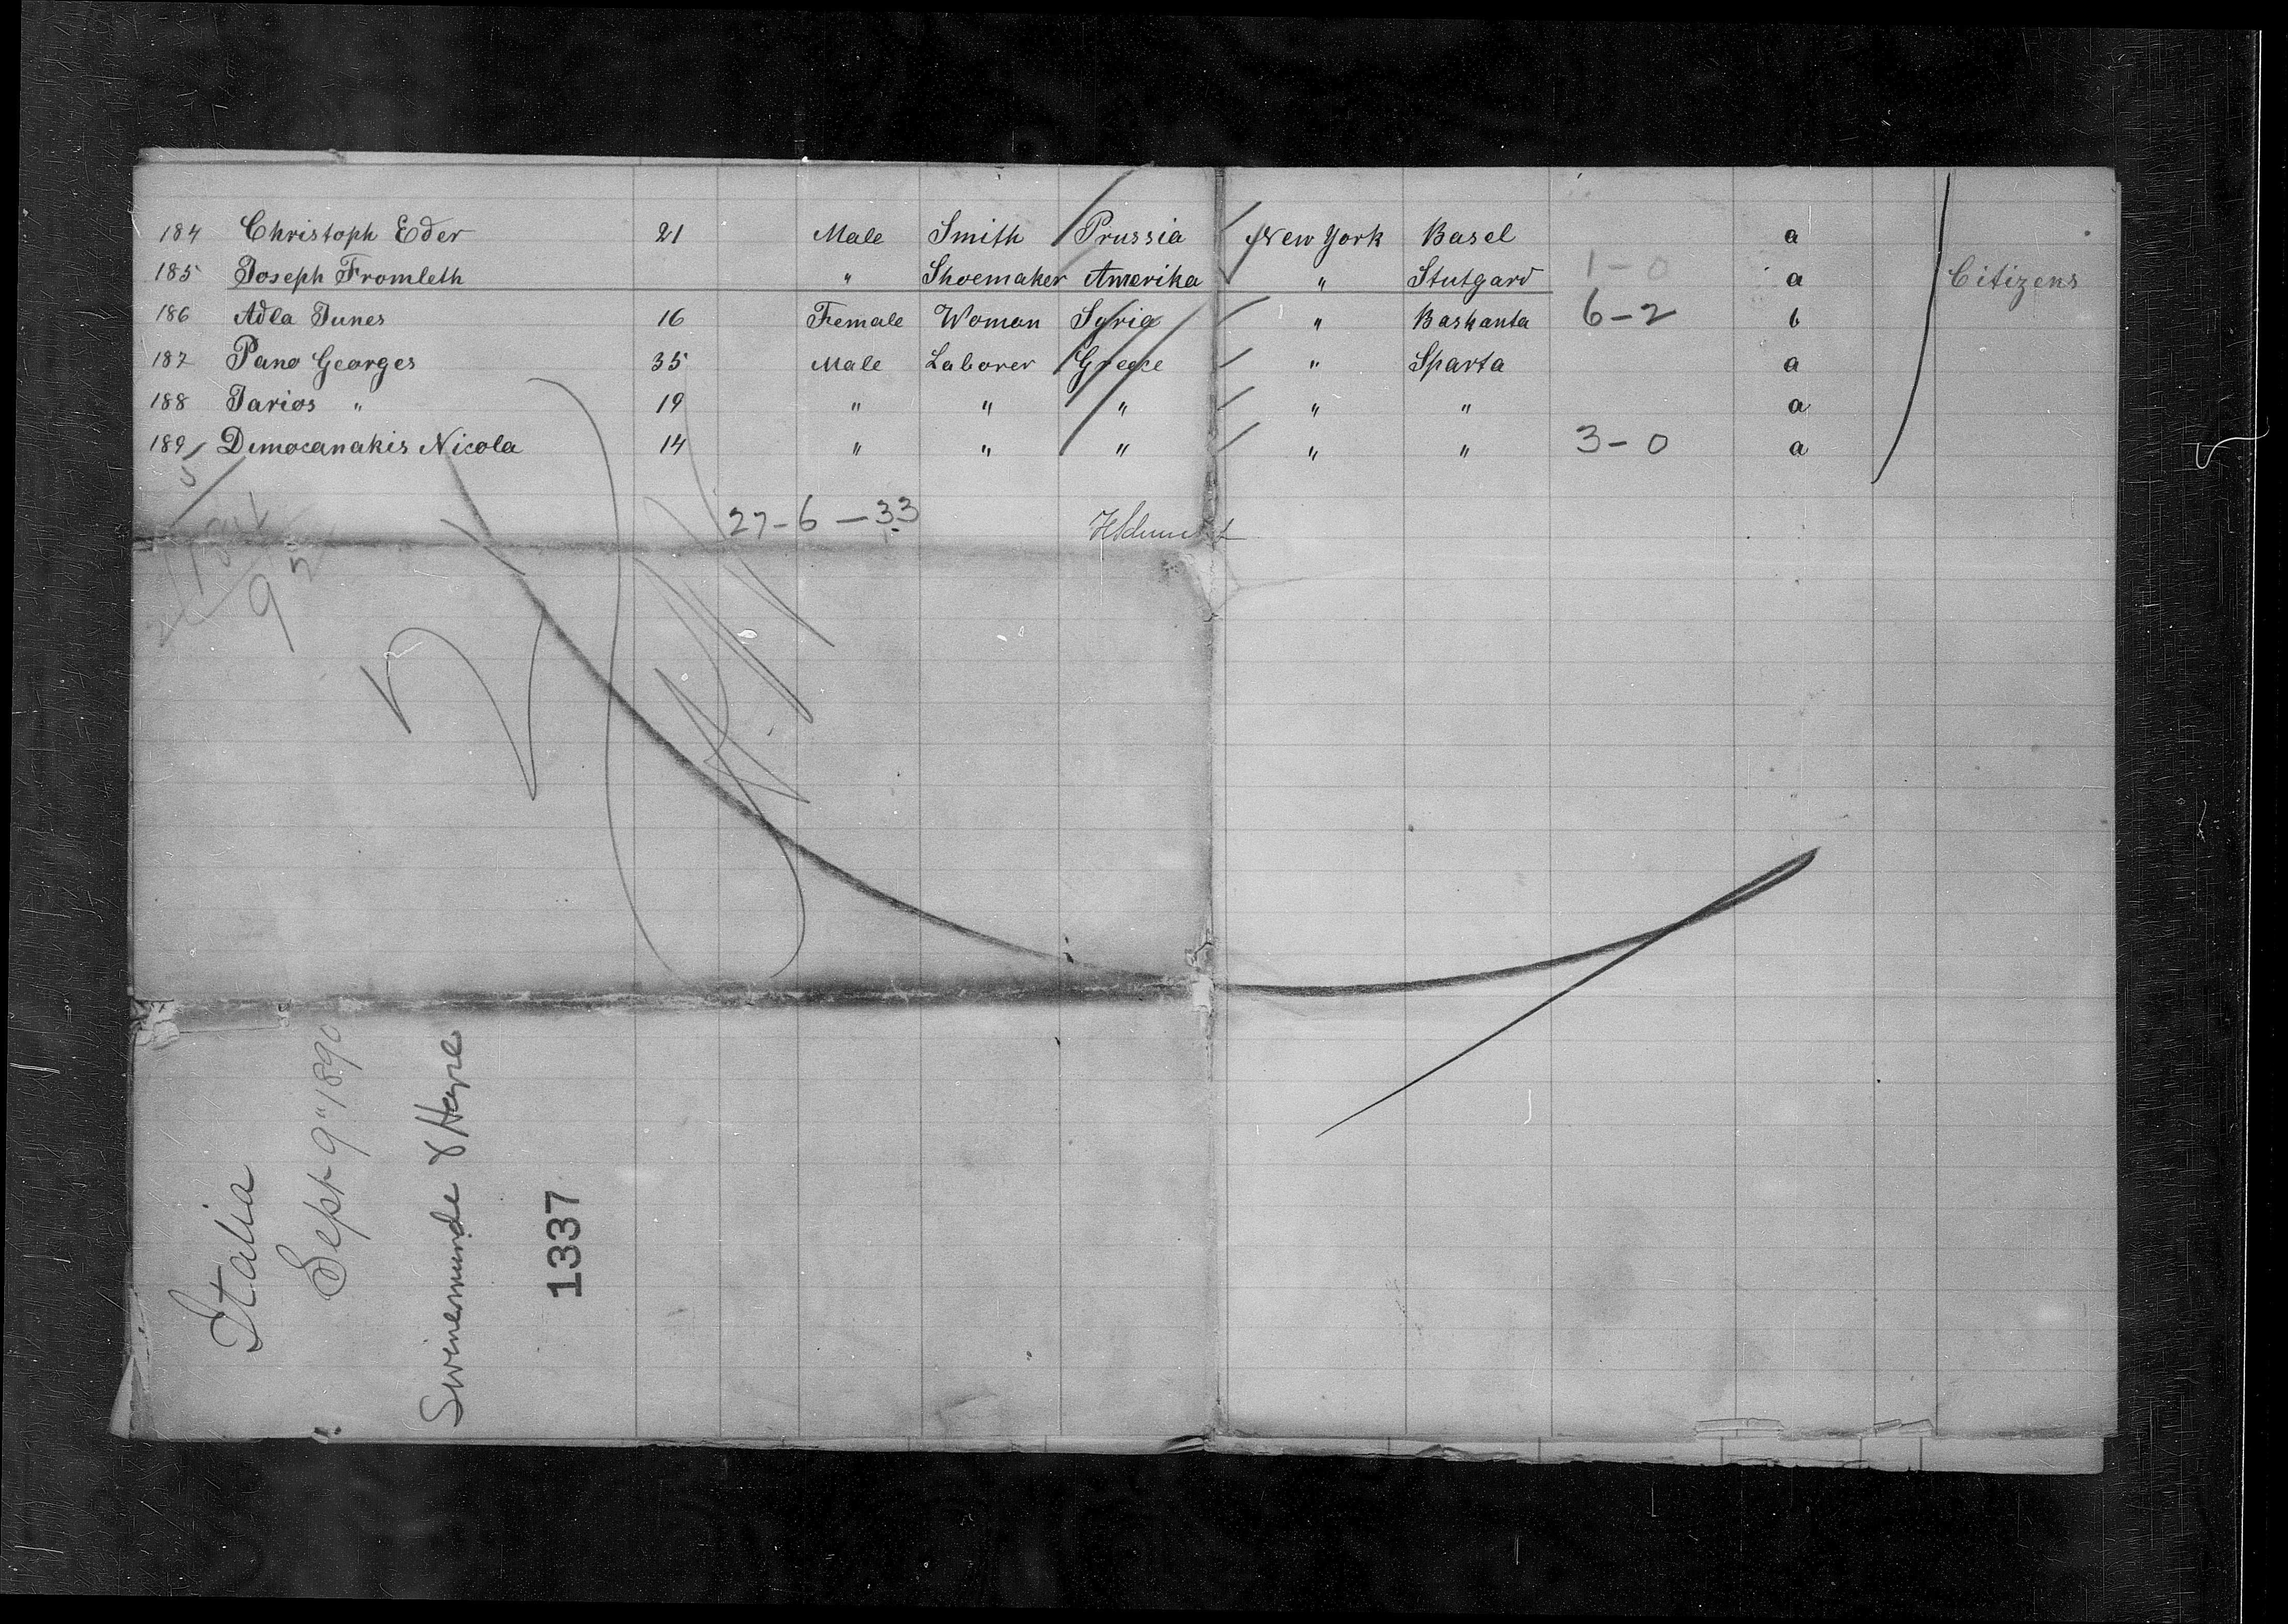 184 Christoph Eder 21 Male Smith Prussia New York Basel a
185 Joseph Fromleth " Shoemaker Amerika " Stutgard 1-0 a Citizens
186 Adla Junes 16 Female Woman Syria " Baskanta 6-2 b
187 Pano Georges 35 Male Laborer Greece " Sparta a
188 Jarios " 19 " " " " " a
189 Dimocanakis Nicola 14 " " " " " 3-0 a
27-6-33
Italia
Sept 9" 1890
Swinemunde & Havre
1337